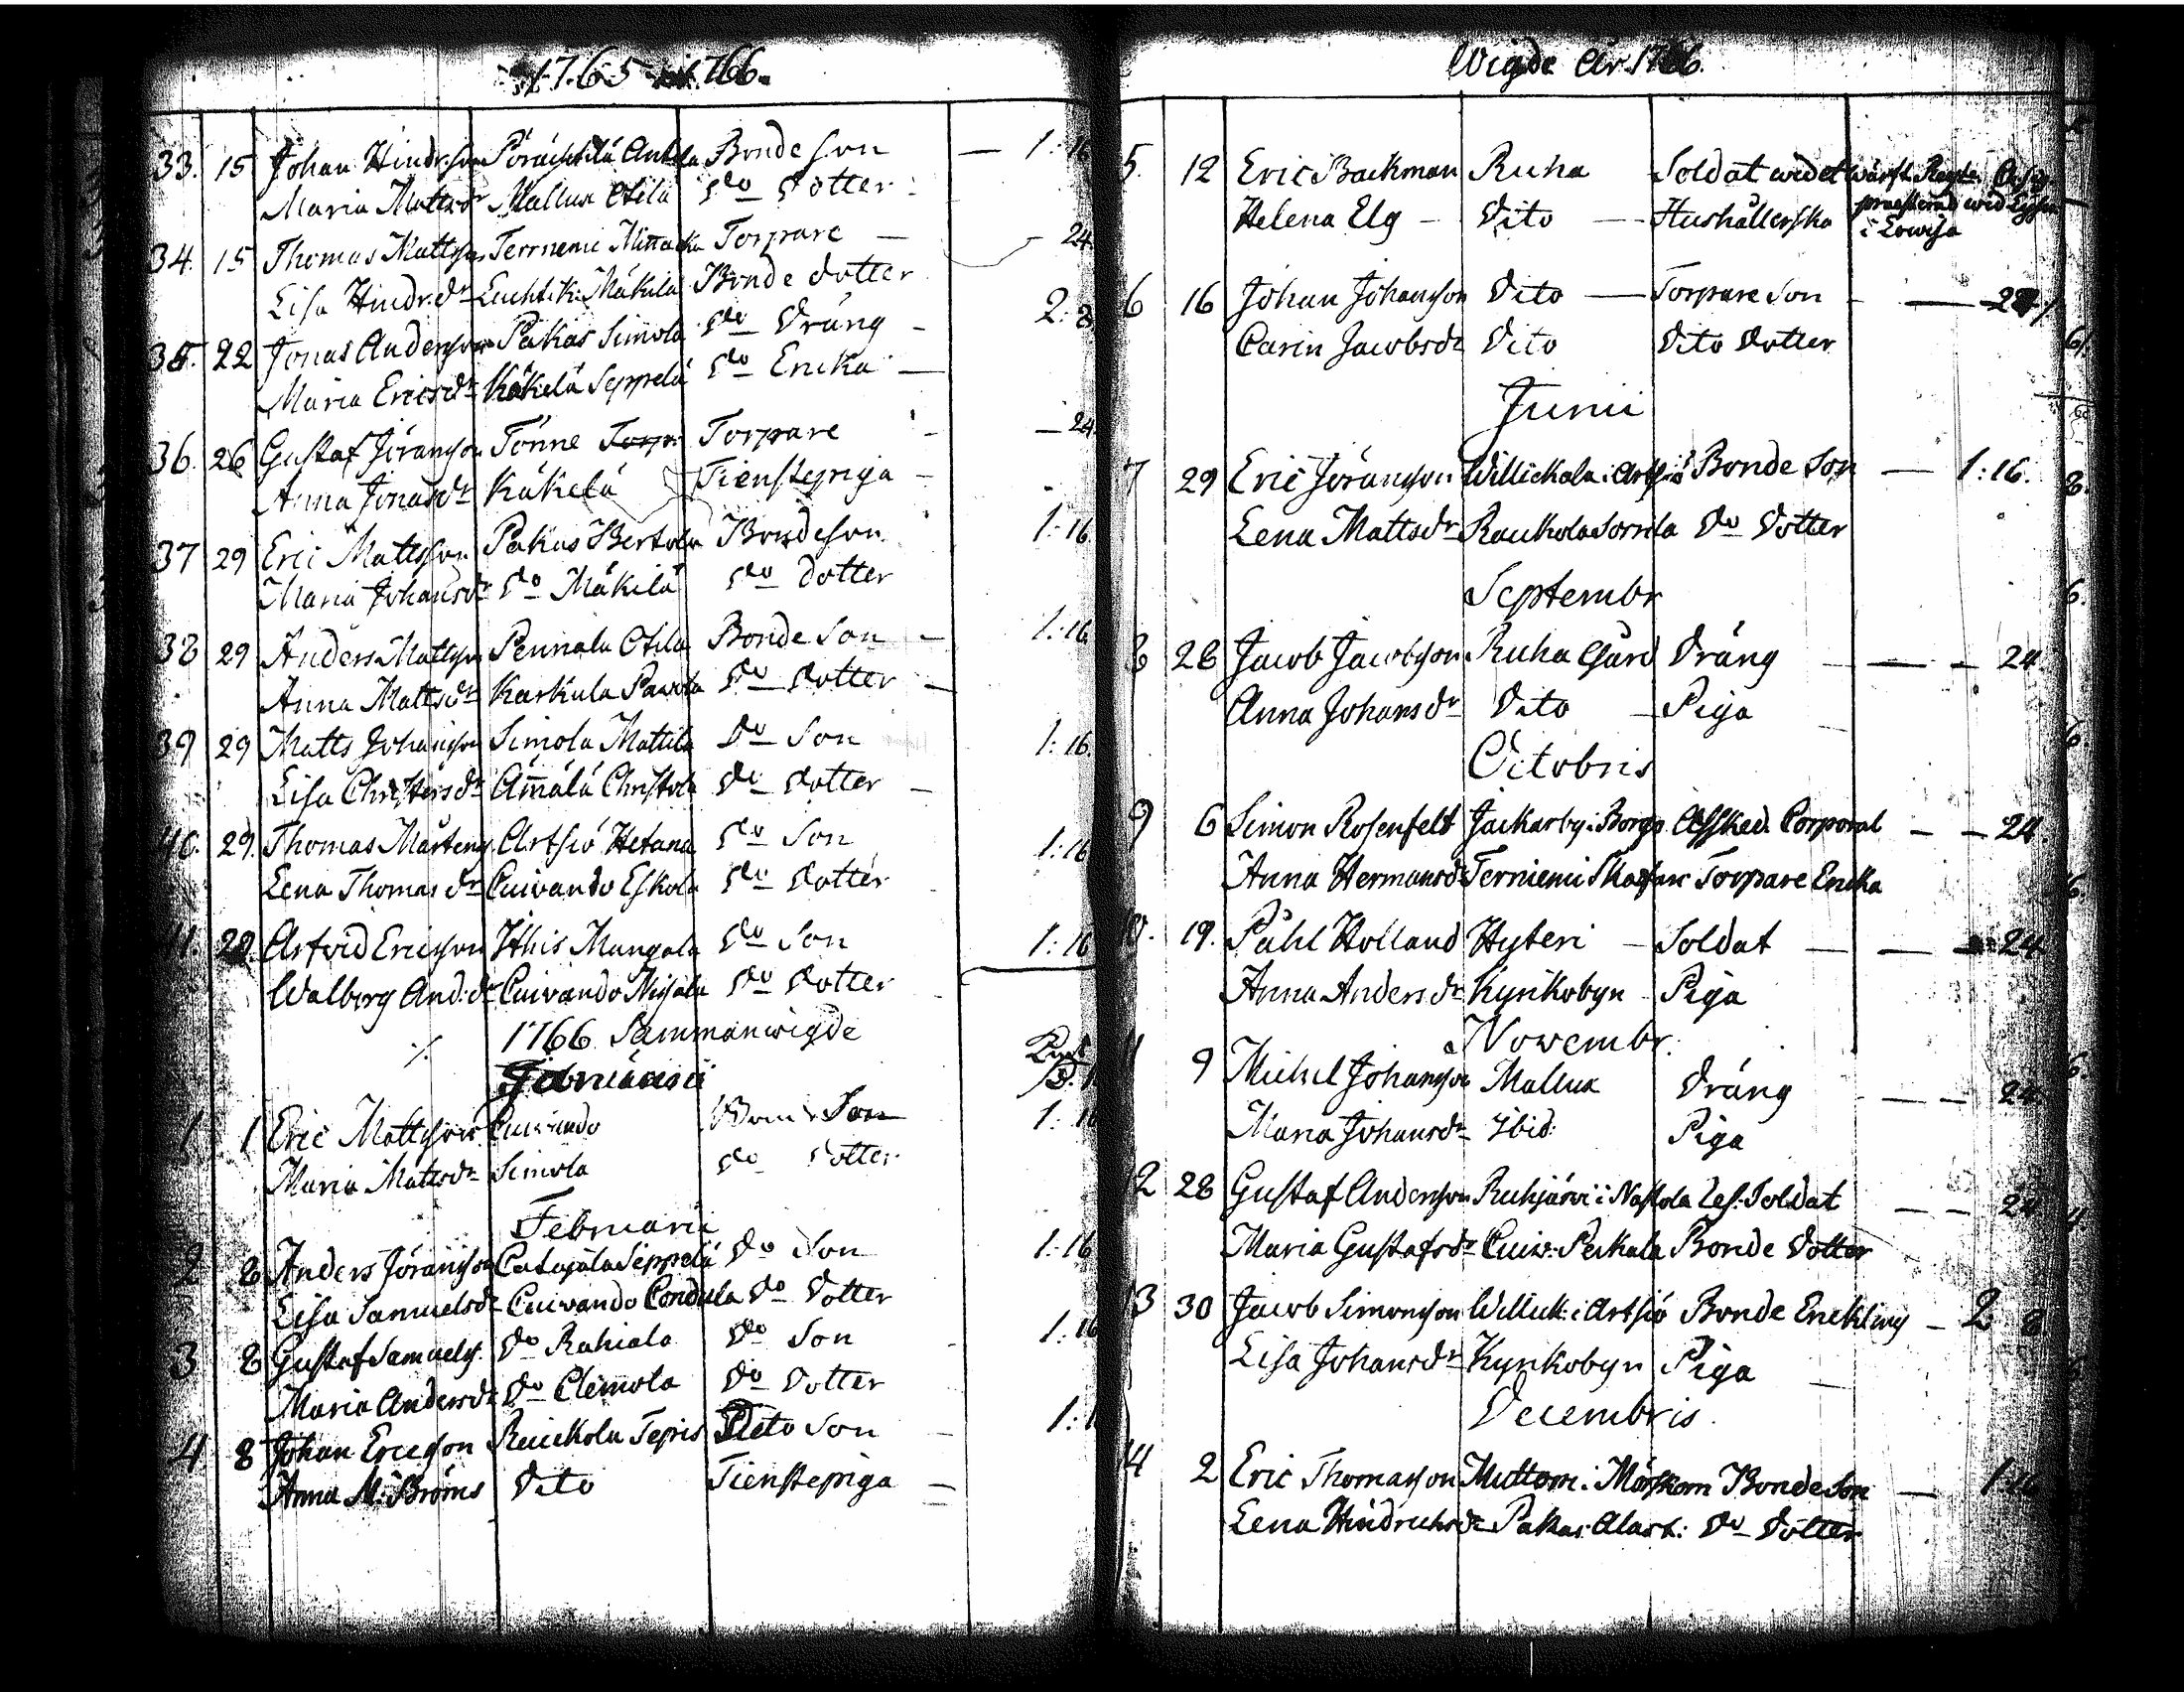 1765 1766.
33. 15 Johan Hindr:son Poruchtila Anttila Bonde Son — 1:16
Maria Mattsdr Mallux Otila Do Dotter
34. 15 Thomas Mattson Terrnemi Torpare — 24.
Lisa Hindr:dr Luchtik: Mäkilä Bonde dotter
35. 22 Jonas Anderson Pakas Simola Do Dräng — 2:8
Maria Ericsdr Käkelä Seppelä Do Encka —
36. 26 Gustaf Jöranson Tönne Torpare — 24.
Anna Jonasdr Käkelä Tienstepiga
37 29 Eric Mattsson Pakas Bertola Bondeson 1:16
Maria Johansdr Do Mäkilä Do dotter
38 29 Anders Mattson Pennala Otila Bonde Son — 1:16
Anna Mattsdr Karkula Pavola Do Dotter —
39 29 Matts Johanson Simola Mattila Do Son 1:16.
Lisa Christersdr Ämälä Christola Do Dotter —
40. 29. Thomas Mårtens. Artsiö Hetana Do Son 1:16
Lena Thomasdr Cuivando Eskola Do Dotter
41. 29. Arfvid Ericson Ithis Mangala Do Son 1:16
Walborg And:dr Cuivando Do Dotter
1766 Sammanwigde
Januarii
1 1 Eric Mattson Cuivando Bonde Son 1:16
Maria Matsdr Simola Do Dotter
Februarii
2 8 Anders Jöranson Catajala Seppelä Do Son 1:16
Lisa Samuelsdr Cuivando Condula Do Dotter
3 8 Gustaf Samuels. Do Rahiala Do Son 1:16
Maria Andersdr Do Clemola Do Dotter
4 8 Johan Ericson Ruickola Tepris Dito Son 1:1
Anna M: Broms Dito Tienstepiga —
Wigde År 1766.
5. 12 Eric Backman Ruha Soldat widet wärft Reg:te
Helena Elg — Dito — Hushållerska
i Lowisa
6 16 Johan Johanson Dito — Torpare Son — 24
Carin Jacobsdr Dito Dito Dotter
Junii
7 29 Eric Jöranson Willickala i Artsiö Bonde Son — 1:16.
Lena Mattsdr Raukola Sorrila Do Dotter
Septembr
8 28 Jacob Jacobson Ruha Gård Dräng — — 24.
Anna Johansdr Dito — Piga
Octobris
9 6 Simon Rosenfelt Jackarby i Borgo Afsked. Corporal — — 24.
Anna Hermansdr Terniemi Torpare Encka
10. 19. Påhl Holland Hyteri — Soldat — — 24
Anna Andersdr Kyrkobyn Piga
Novembr.
11 9 Michel Johanson Mallux Dräng — — 24.
Maria Johansdr Ibid: Piga
12 28 Gustaf Anderson Ruhjärvi i Nastola Les: Soldat — — 24
Maria Gustafsdr Cuiv: Peckala Bonde Dotter
13 30 Jacob Simonson Willuk: i Artsiö Bonde Enckling — 2 8
Lisa Johansdr Kyrkobyn Piga
Decembris.
14 2 Eric Thomason Muttom i Mörskom Bonde Son — 1:16
Lena Hindrichsdr Pakas Alast: Do Dotter